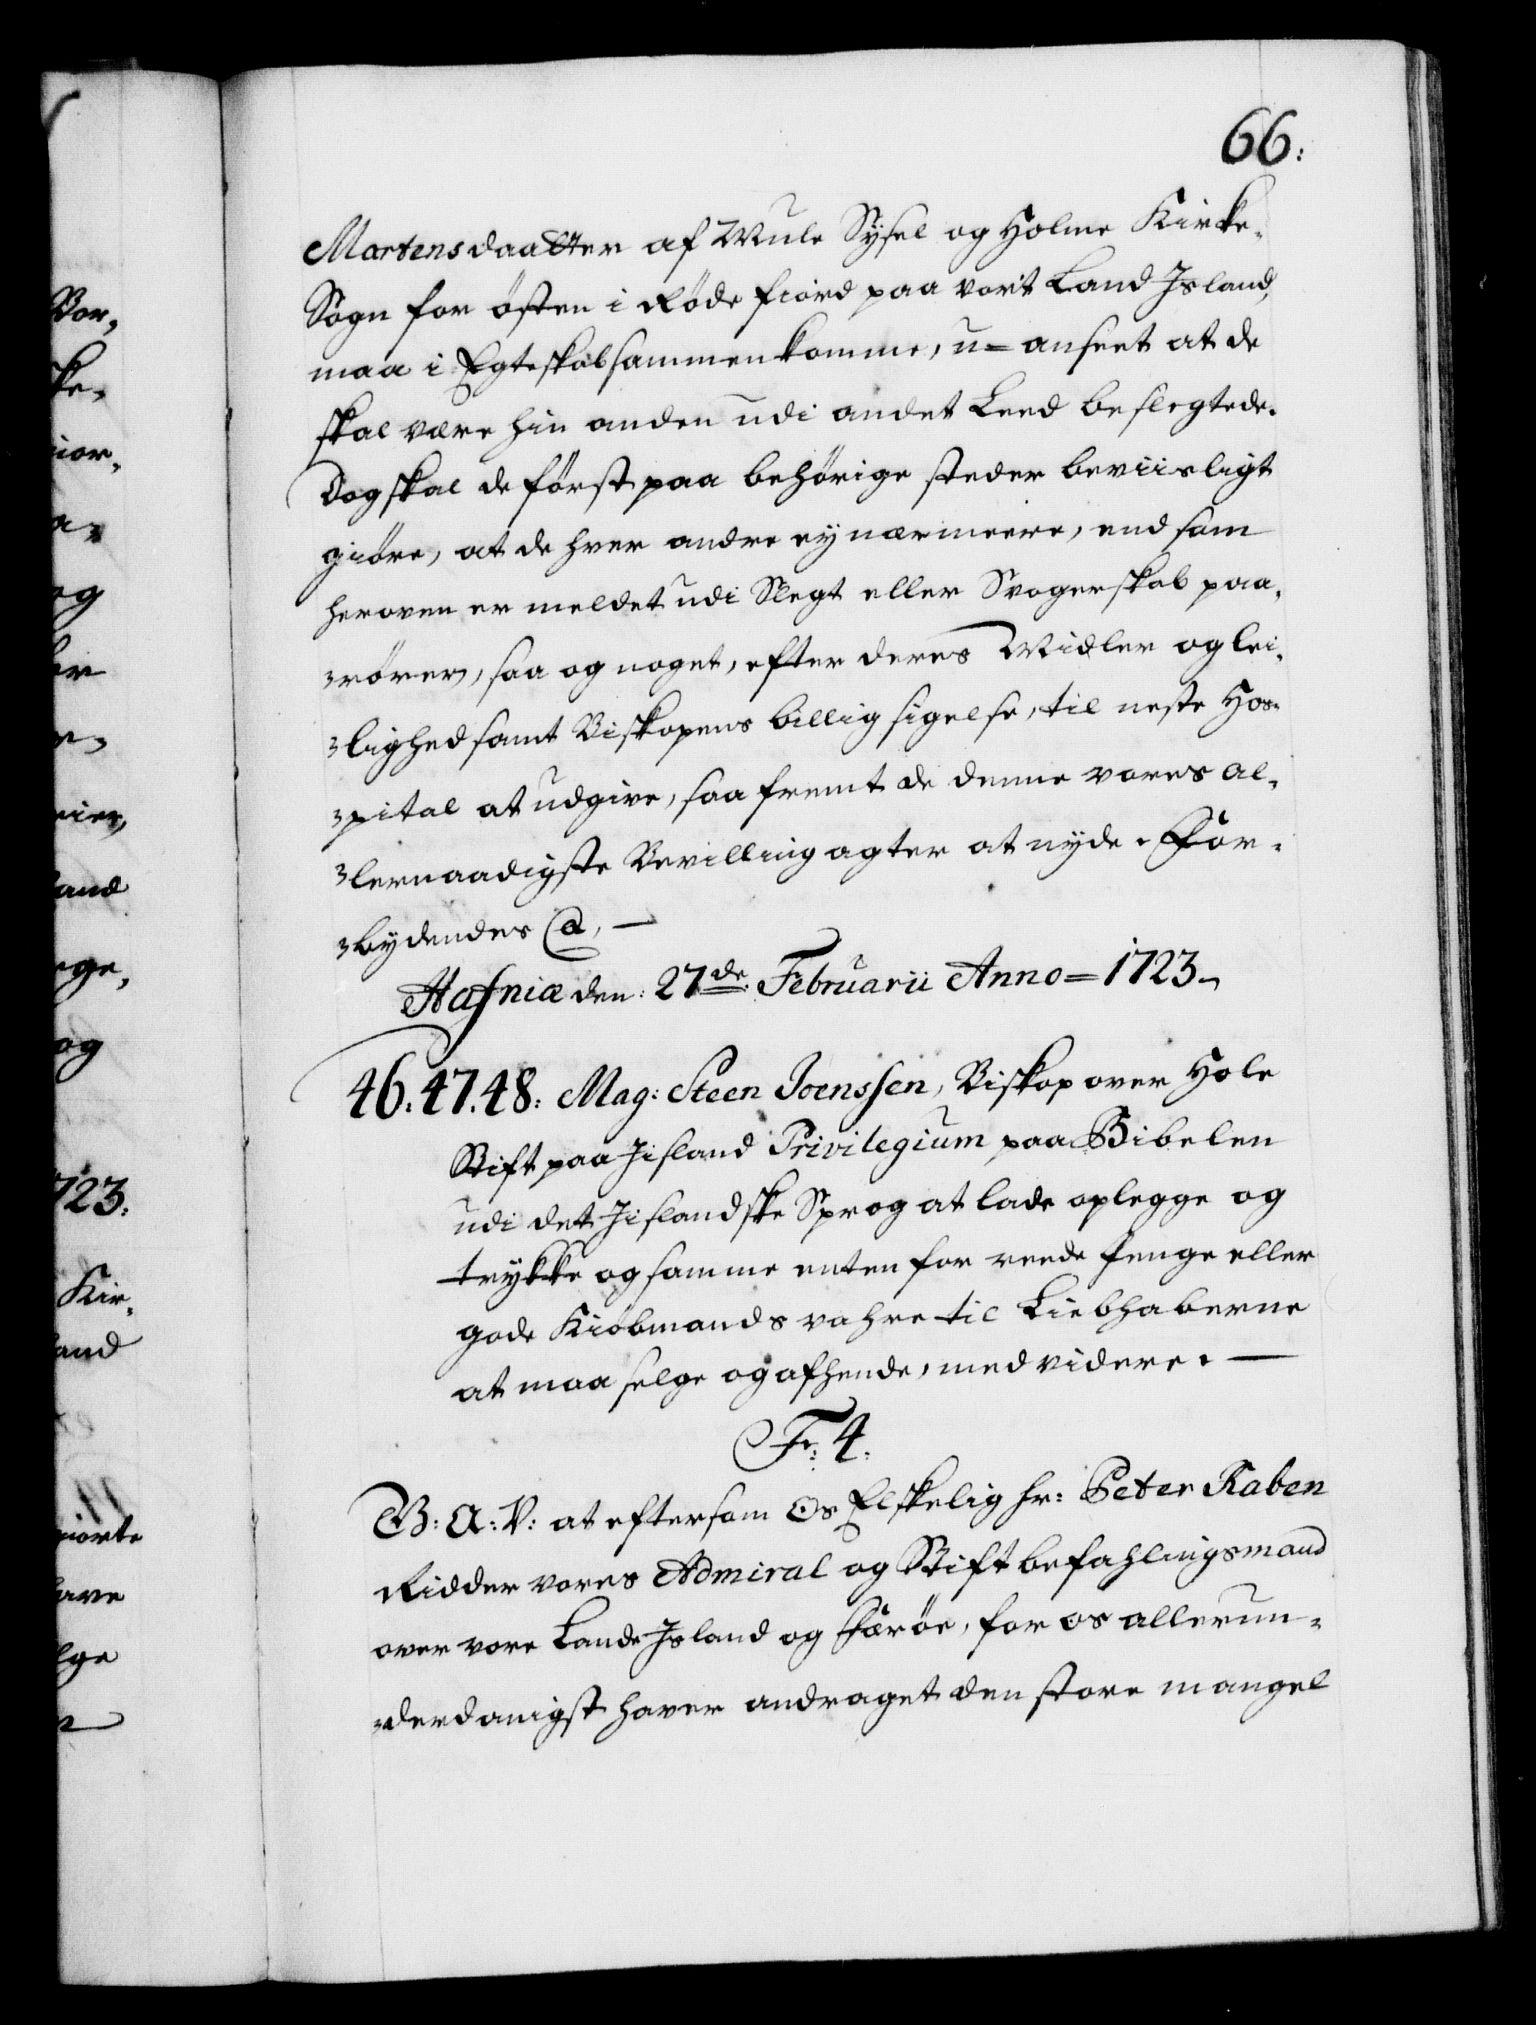 66:
Martensdaatter af Mule Sysel og Holme Kirke-
Sogn for østen i Røde fiord paa vort Land Island,
maa i Egteskab sammenkomme, u=anseet at de
skal være hin anden udi andet Leed beslegtede.
Dog skal de først paa behørige steder beviisligt
giøre, at de hver andre ey nærmeere, end som
heroven er meldet udi Slegt eller Svogerskab paa-
rører, saa og noget, efter deres Midler og lei-
lighed samt Biskopens billigsigelse, til neste Hos-
pital at udgive, saafremt de denne vores al-
lernaadigste Bevilling agter at nyde. For-
bydendes @, —
Hafniæ den: 27de Februarii Anno=1723.
46. 47. 48: Mag: Steen Joenssen, Biskop over Hole
Stift paa Jisland Privilegium paa Bibelen
udi det Jislandske Sprog at lade oplegge og
trykke og samme enten for reede Penge eller
gode Kiøbmands vahre til Liebhaberne
at maa selge og afhende, med videre. —
Fr: 4.
G: A: V: at eftersom Os Elskelig Hr: Peter Raben
Ridder vores Admiral og Stiftbefahlingsmand
over vore Lande Island og Færøe, for os allerun-
derdanigst haver andraget den store mangel
Bor,
ke,
ior,
a,
og
and
ge,
og
723:
Kir,
and
giorte
have
lge